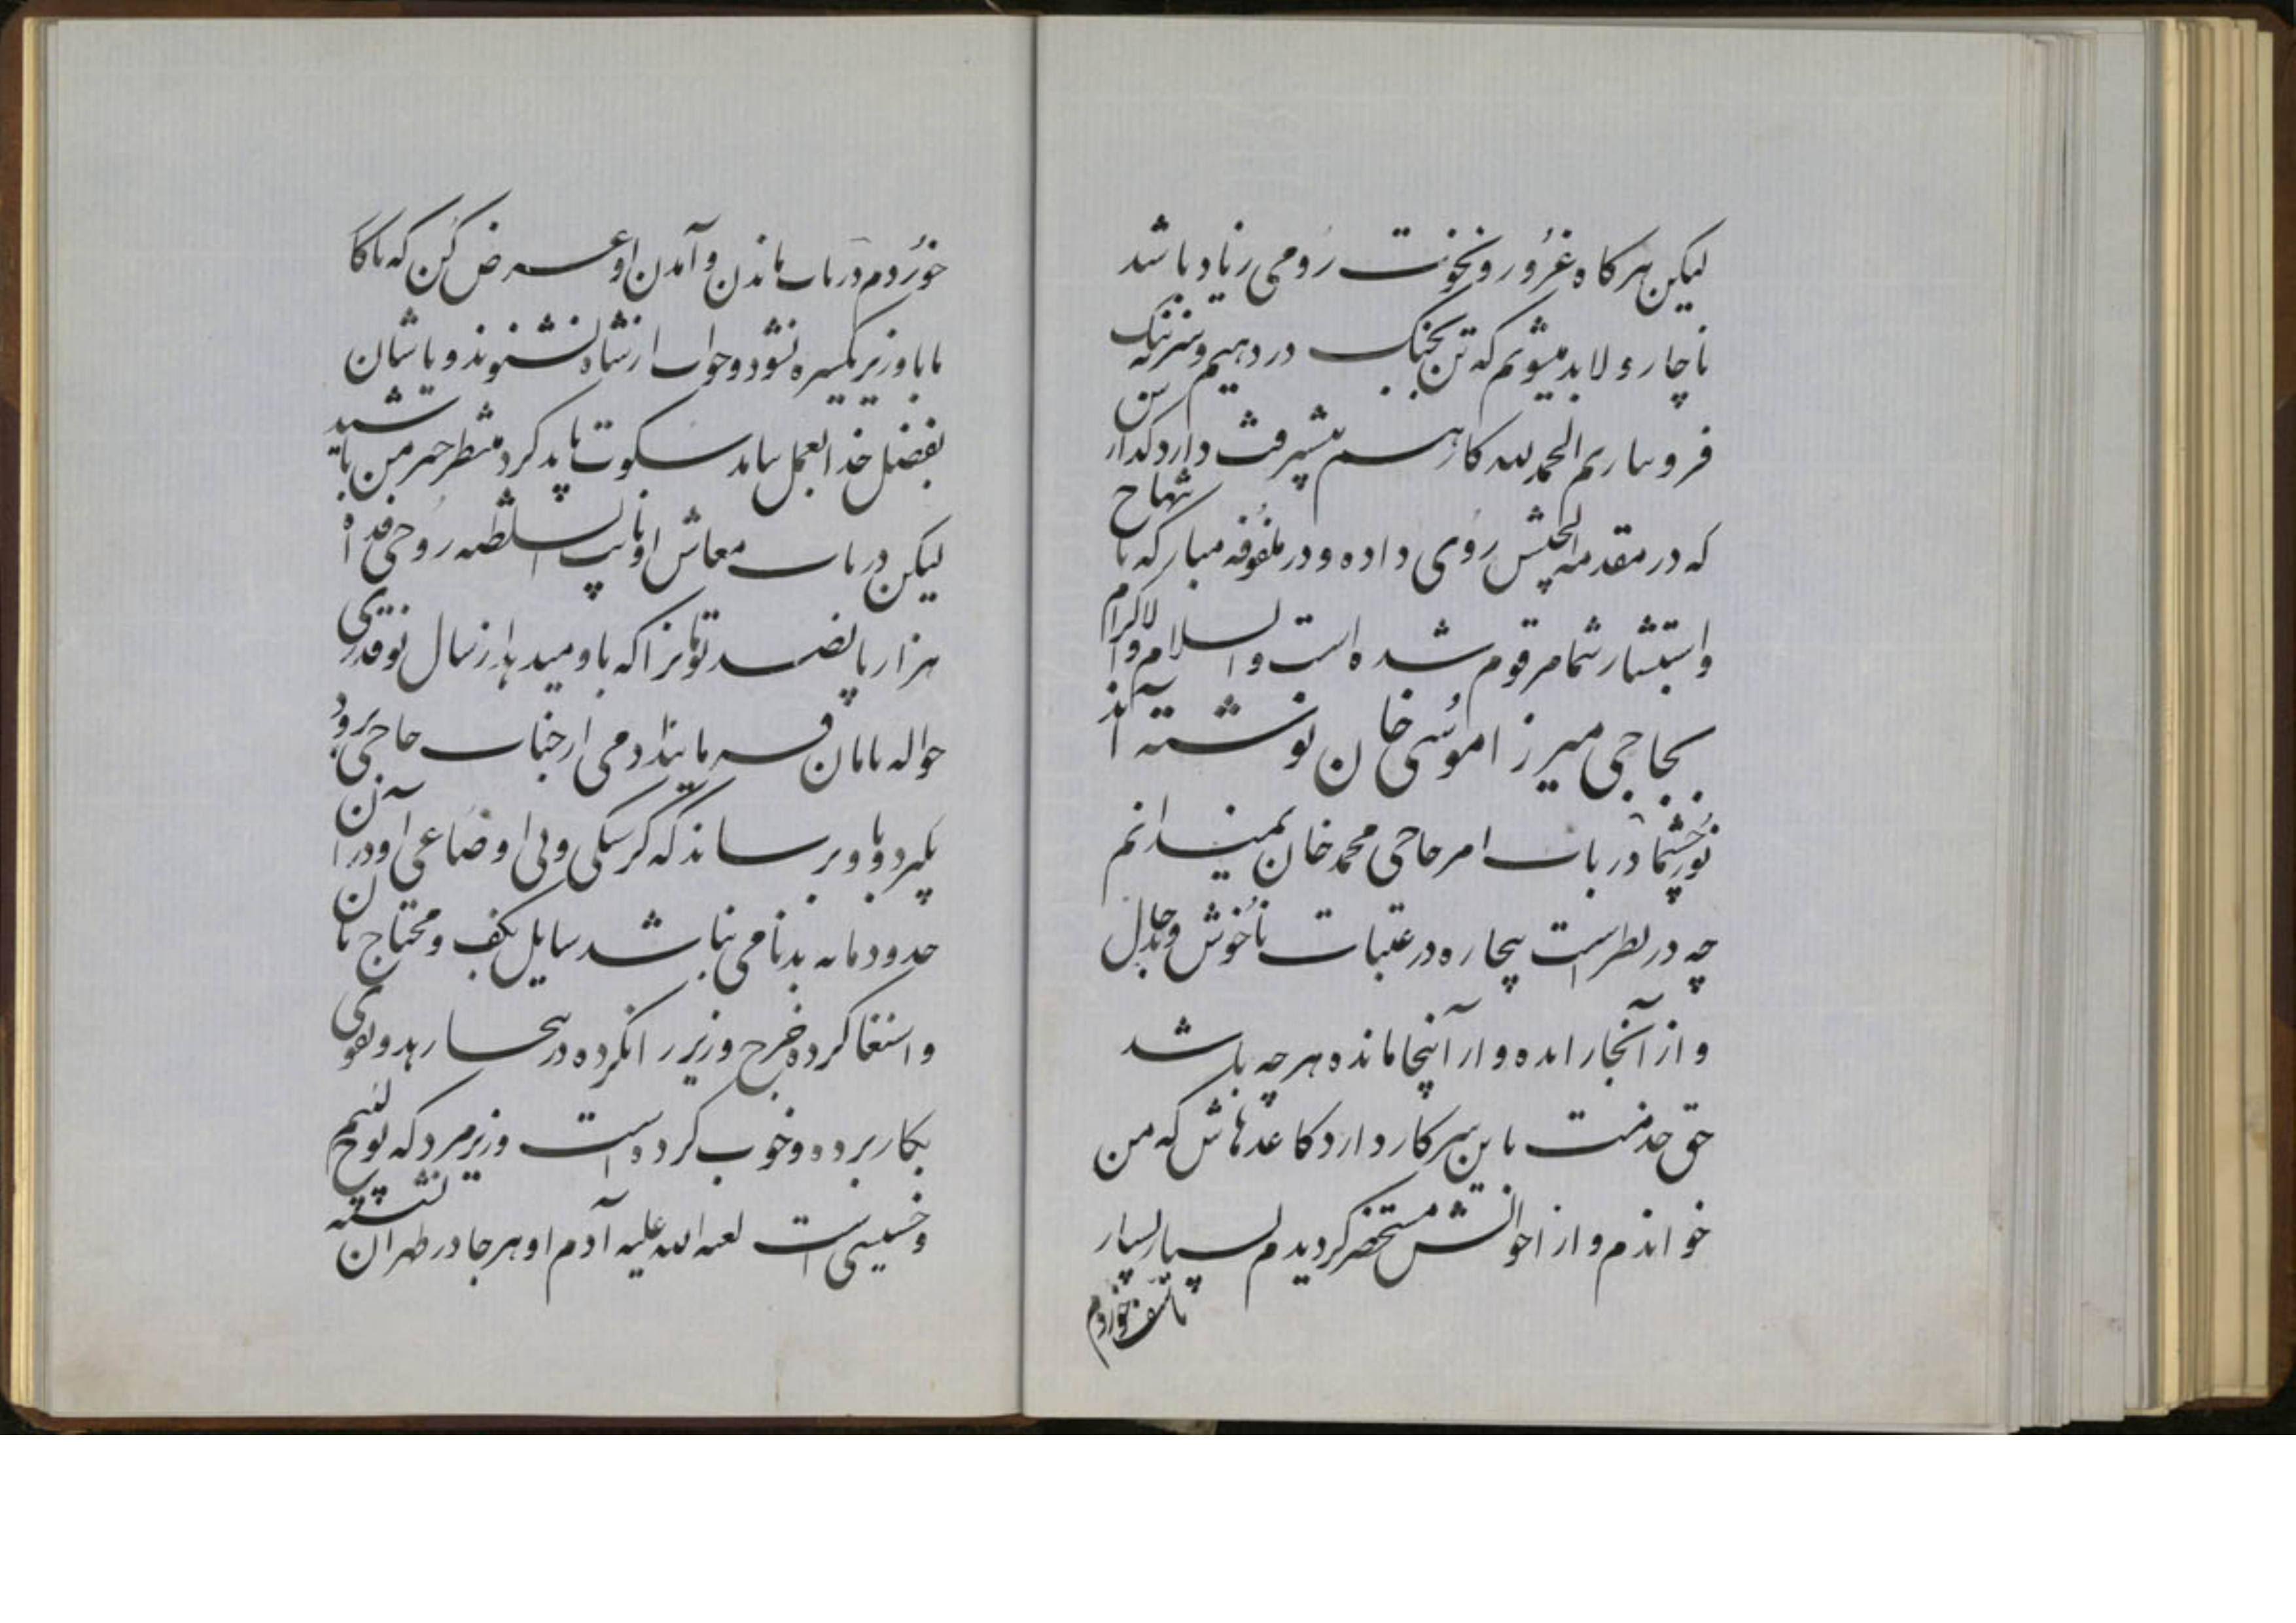 لیکن هر کاه غرور و نخوت رومی زیاد باشد
ناچار و لابد میشویم که تن بجنگ در دهیم و سر به ننک
فرو نیاریم الحمد لله کار هم پیشرفت دارد کذار
که در مقدمه الجیش روی داده و در ملفوفه مبارکه با شهاج
و استبشار شما مرقوم شده است والسلام والاکرام
بحاجی میرزا موسی خان نوشته اند
نورچشما در باب امر حاجی محمد خان نمیدانم
چه در نظر است بیچاره در عتبات ناخوش و بدحال
و از آنجا رانده و از اینجا مانده هر چه باشد
حق خدمت باین سرکار دارد کاغذهاش که من
خواندم و از احوالش مستحضر کردیدم بسیار بسیار
تاسف خوردم
خوردم در باب ماندن و آمدن او عرض کن که ناکا
مابا وزیر یکسره نشود و جواب از شاه نشنوند و پاشان
بفضل خذ العجل نیاید سکوت باید کرد منتظر خبر من باشید
لیکن در باب معاش او نایب السلطنه روحی فداه
هزار پانصد تومانرا که باو میدهد از سال نو قدری
حواله مامان فرمایند ادمی از جناب حاجی برود
بگیرد و باو برساند که کرسنکی و بی اوضاعی او در آن
حدود مایه بدنامی نباشد سایل بکف و محتاج نان
و استغنا کرده خرج وزیر را نکرده در بیجا زهد و تقوی
بکار برده و خوب کرده است وزیر مرد که لئیم
و خسیسی است لعنه الله علیه آدم او هر جا در طهران نشسته